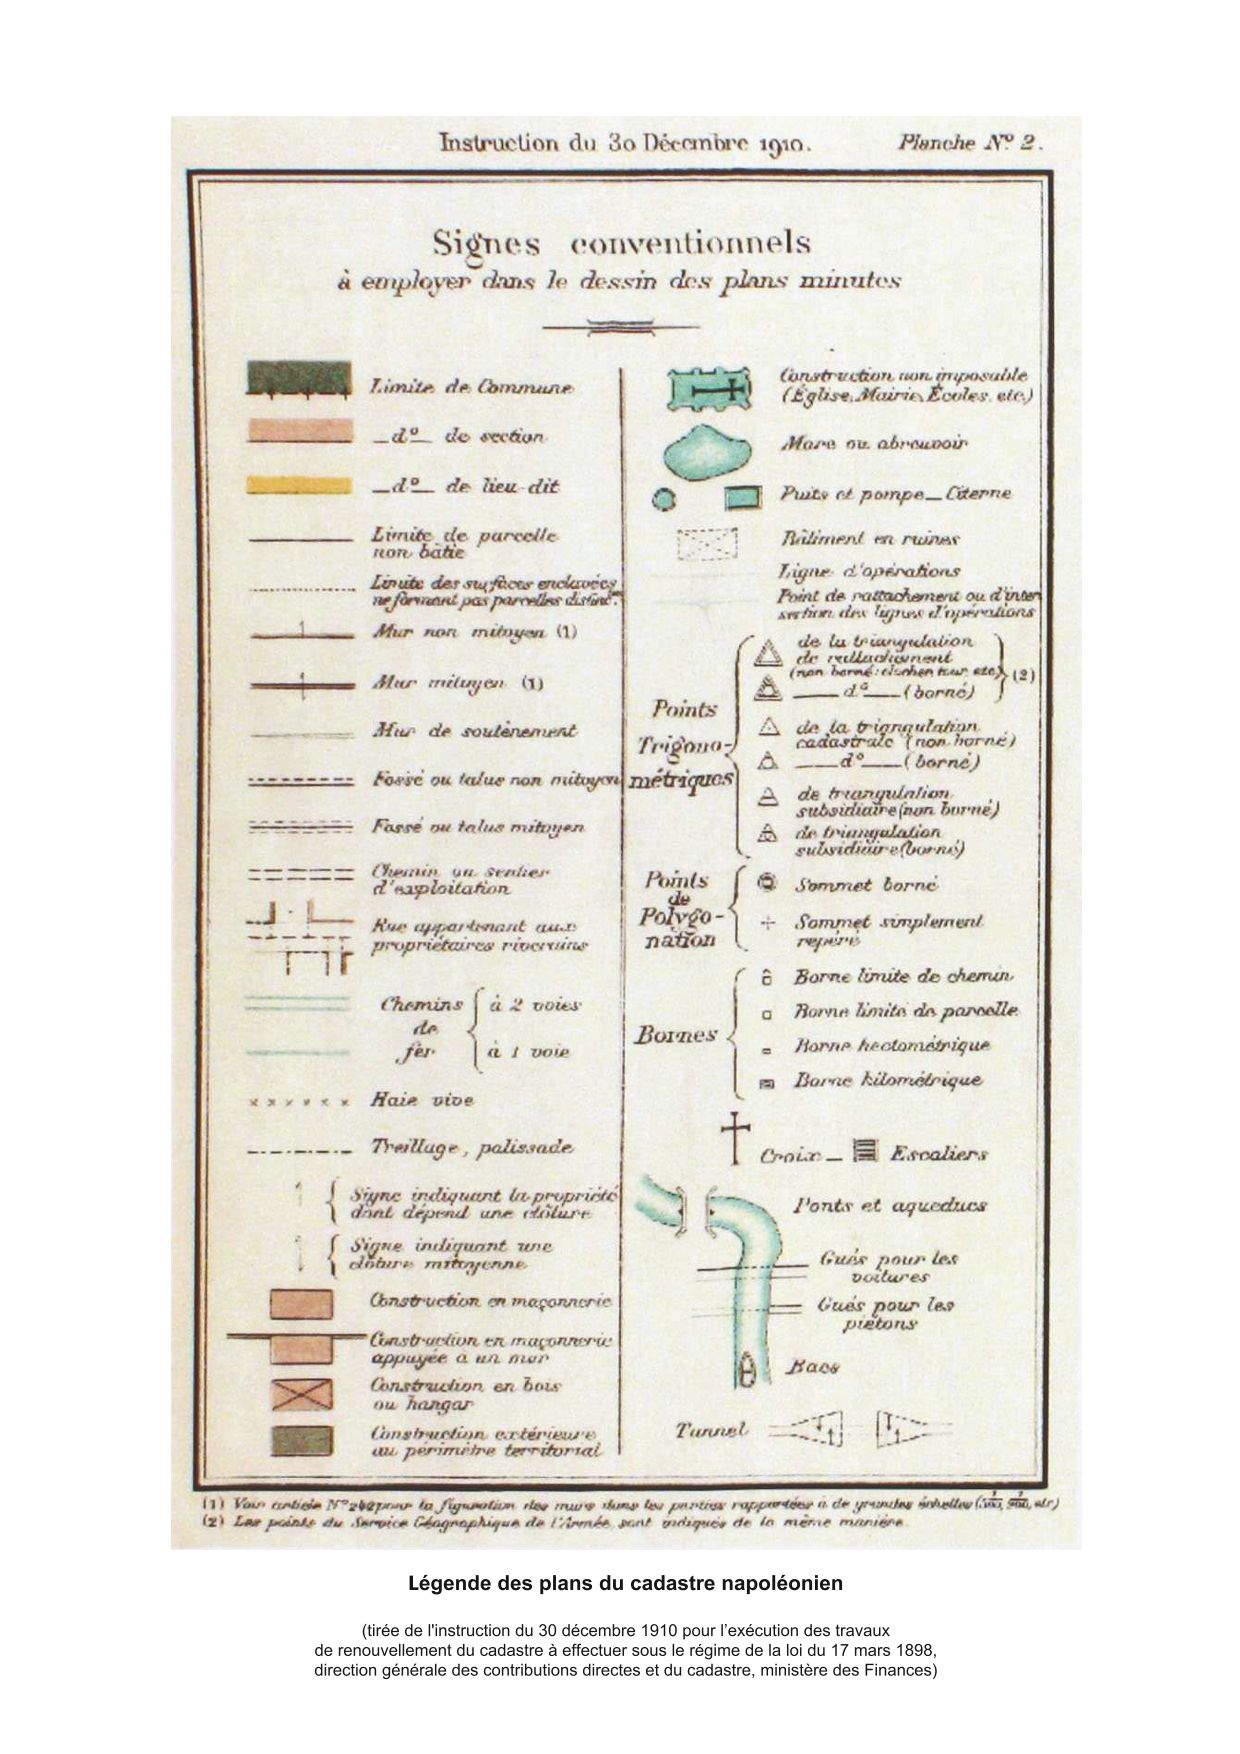 Instruction du 30 Décembre 1910.
Planche Nº 2.
Signes conventionnels
à employer dans le dessin des plans minutes
Limite de Commune
_dº_ de section
_dº_ de lieu-dit
Limite de parcelle
non bâtie
Limite des surfaces enclavées
ne formant pas parcelles distinc.
Mur non mitoyen (1)
Mur mitoyen (1)
Mur de soutènement
Fossé ou talus non mitoyen
Fossé ou talus mitoyen
Chemin ou sentier
d'exploitation
Rue appartenant aux
propriétaires riverains
Chemins
de
fer
à 2 voies
à 1 voie
Haie vive
Treillage, palissade
Signe indiquant la propriété
dont dépend une clôture
Signe indiquant une
clôture mitoyenne
Construction en maçonnerie
Construction en maçonnerie
appuyée à un mur
Construction en bois
ou hangar
Construction extérieure
au périmètre territorial
Construction non imposable
(Église, Mairie, Écoles, etc.)
Mare ou abreuvoir
Puits et pompe _ Citerne
Bâtiment en ruines
Ligne d'opérations
Point de rattachement ou d'inter
section des lignes d'opérations
Points
Trigono-
métriques
de la triangulation
de rattachement
(non borné: clocher, tour, etc.)
(2)
____dº____ (borné)
de la triangulation
cadastrale (non borné)
____dº____ (borné)
de triangulation
subsidiaire (non borné)
de triangulation
subsidiaire (borné)
Points
de
Polygo-
nation
Sommet borné
Sommet simplement
repéré
Bornes
Borne limite de chemin
Borne limite de parcelle
Borne hectométrique
Borne kilométrique
Croix _ Escaliers
Ponts et aqueducs
Gués pour les
voitures
Gués pour les
piétons
Bacs
Tunnel
(1) Voir article Nº pour la figuration des murs dans les parties rapportées à de grandes échelles
(2) Les points du Service Géographique de l'Armée sont indiqués de la même manière.
Légende des plans du cadastre napoléonien
(tirée de l'instruction du 30 décembre 1910 pour l'exécution des travaux
de renouvellement du cadastre à effectuer sous le régime de la loi du 17 mars 1898,
direction générale des contributions directes et du cadastre, ministère des Finances)